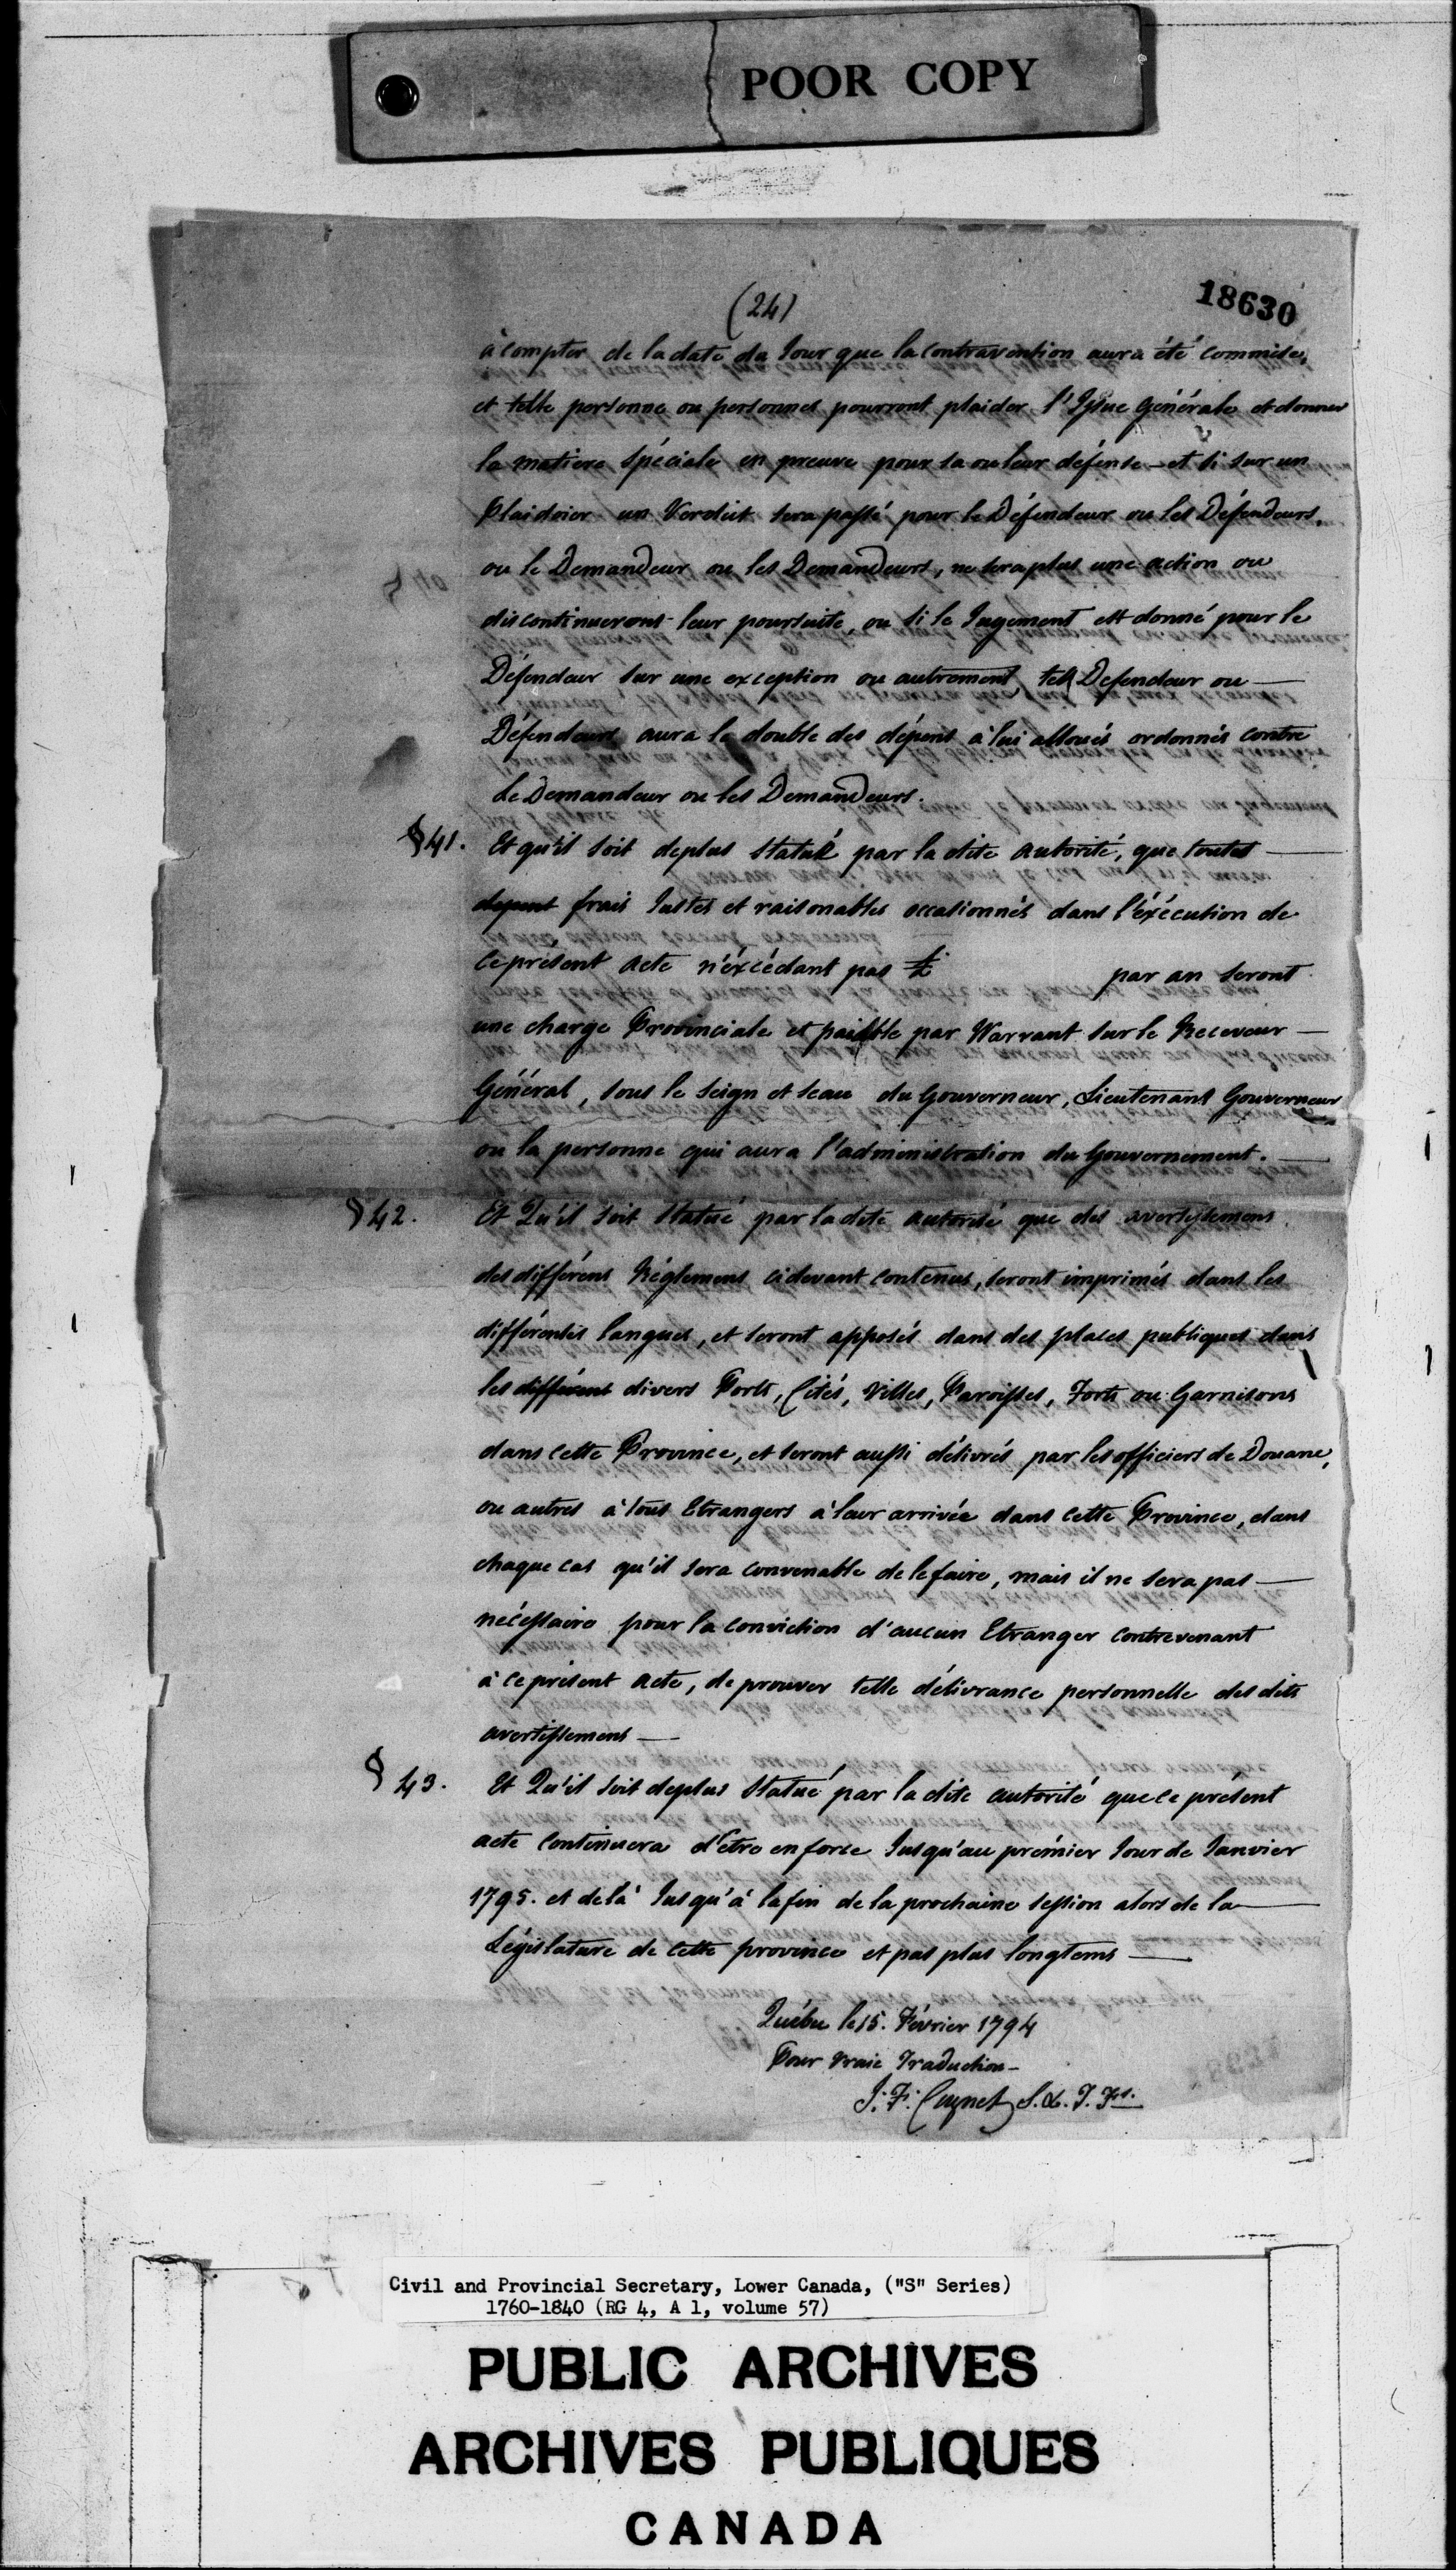 POOR COPY
(24)
18630
à compter de la date du Jour que la contravention aura été commise,
et telle personne ou personnes pourront plaider l'Issue Générale et donner
la matiere Spéciale en preuve pour sa ou leur défense - et si sur un
Plaidoier un Verdict sera passé pour le Défendeur ou les Défendeurs,
ou le Demandeur ou les Demandeurs, ne sera plus une action ou
discontinueront leur poursuite, ou si le Jugement est donné pour le
Défendeur sur une exception ou autrement, tel Defendeur ou
Défendeurs aura le double des dépens à lui alloués ordonnés contre
le Demandeur ou les Demandeurs.
§ 41. Et qu'il soit deplus Statué par la dite autorité, que toutes
depens frais Justes et raisonables occasionnés dans l'éxécution de
ce présent acte n'éxcédant pas £ par an seront
une charge Provinciale et paiable par Warrant sur le Receveur
Général, sous le Seign et sceau du Gouverneur, Lieutenant Gouverneur
ou la personne qui aura l'administration du Gouvernement.
§ 42. Et Qu'il soit Statué par la dite autorité que des avertissemens
des différens Réglemens cidevant contenus, seront imprimés dans les
différentes langues, et seront apposés dans des places publiques dans
les différent divers Ports, Cités, Villes, Paroisses, Forts ou Garnisons
dans cette Province, et seront aussi délivrés par les officiers de Douane,
ou autres à tous Etrangers à leur arrivée dans cette Province, dans
chaque cas qu'il sera convenable de le faire, mais il ne sera pas
nécessaire pour la conviction d'aucun Etranger contrevenant
à ce présent acte, de prouver telle délivrance personnelle des dits
avertissemens
§ 43. Et Qu'il soit deplus Statué par la dite autorité que ce présent
acte continuera d'être en force Jusqu'au prémier Jour de Janvier
1795. et delà Jusqu'à la fin de la prochaine session alors de la
Législature de cette province et pas plus longtems
Québec le 15. Février 1794
Pour vraie Traduction -
J. F. Cugnet S. & T. Frs.
Civil and Provincial Secretary, Lower Canada, ("S" Series)
1760-1840 (RG 4, A 1, volume 57)
PUBLIC ARCHIVES
ARCHIVES PUBLIQUES
CANADA